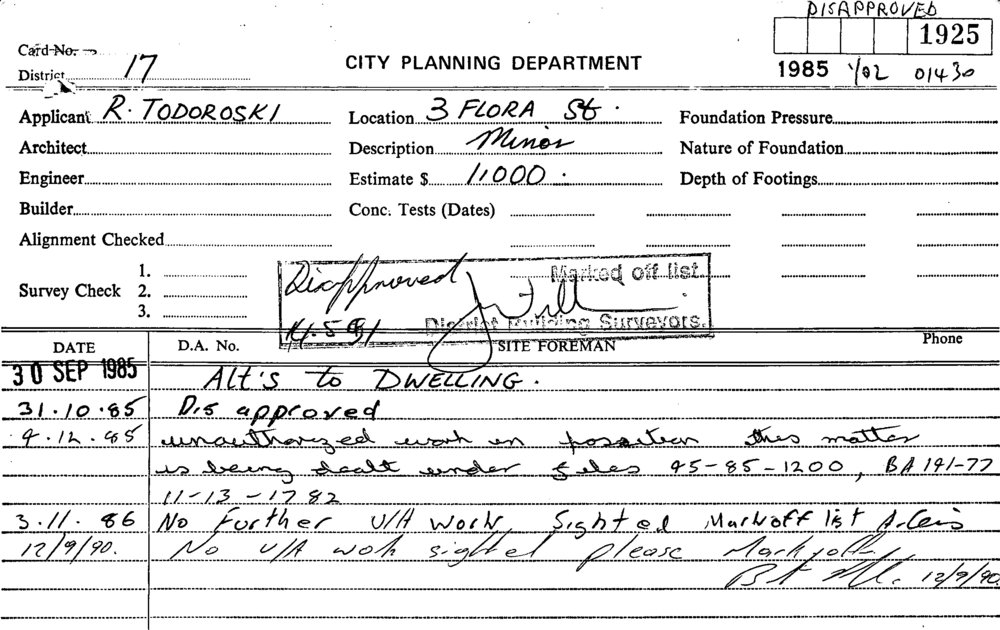 DISAPPROVED
1925
Card No.
District 17
CITY PLANNING DEPARTMENT
1985 1/02 01430
Applicant R. TODOROSKI
Location 3 FLORA St.
Foundation Pressure
Architect
Description Minor
Nature of Foundation
Engineer
Estimate $ 1,000.
Depth of Footings
Builder
Conc. Tests (Dates)
Alignment Checked
Survey Check
1.
2.
3.
Disapproved
Marked off list
14.5.91
District Building Surveyors.
DATE
D.A. No.
SITE FOREMAN
Phone
30 SEP 1985 Alt's to DWELLING.
31.10.85 Disapproved
9.12.85 unauthorized work in position this matter
is being dealt under files 45-85-1200, BA 191-77
11-13-1782
3.11.86 No Further U/A Work, Sighted Mark off list
12/9/90. No U/A work sighted please Mark off.
12/9/90